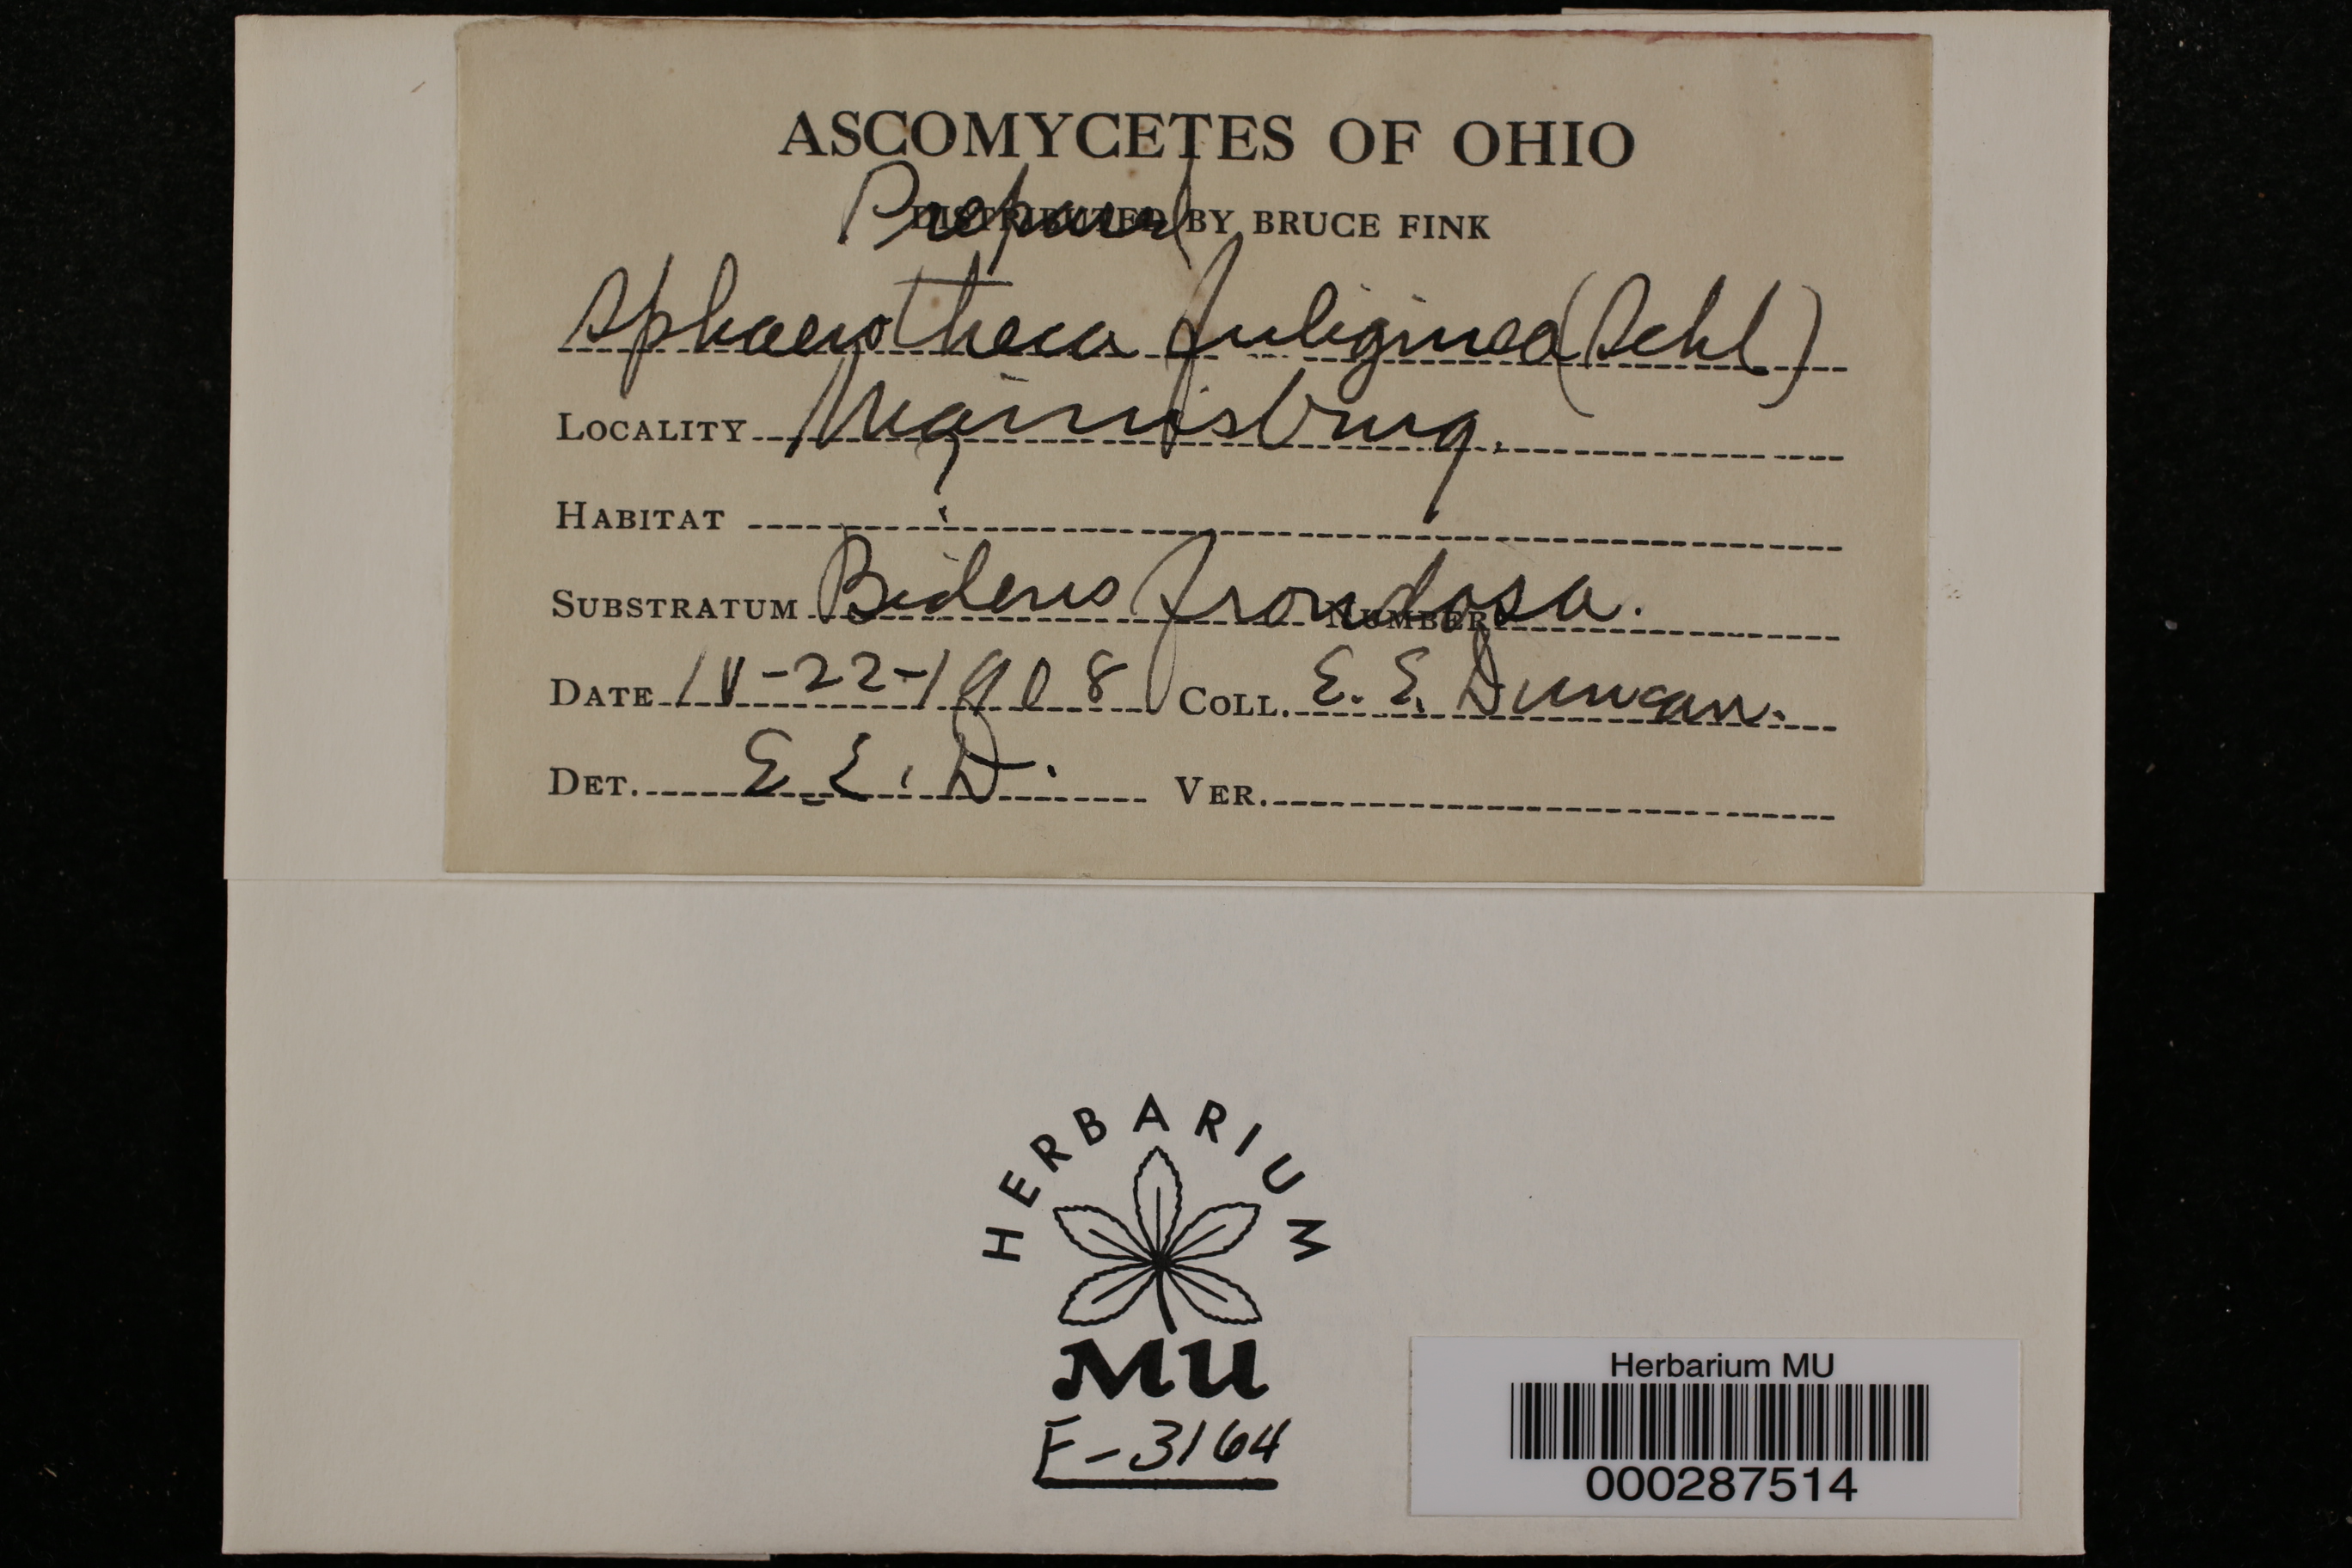 ASCOMYCETES OF OHIO
Prepared
DISTRIBUTED BY BRUCE FINK
Sphaerotheca fuliginea (Schl)
LOCALITY
HABITAT
SUBSTRATUM Bidens frondosa. NUMBER
DATE 10-22-1908 COLL. E. E. Duncan.
DET. E. E. D. VER.
HERBARIUM
MU
F-3164
Herbarium MU
000287514